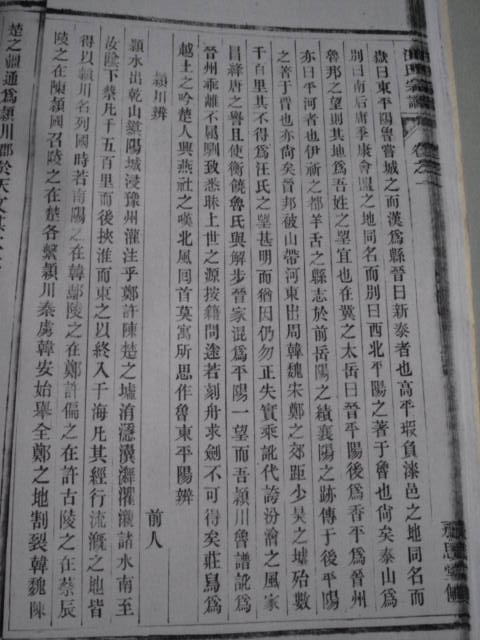 汪氏宗譜 卷之一
嶽曰東平陽魯嘗城之而漢爲縣晉曰新泰者也高平瑕負漆邑之地同名而
別曰南后唐季康會盟之地同名而別曰西北平陽之著于魯也尙矣泰山爲
魯邦之望則其地爲吾姓之望宜也在冀之太岳曰晉平陽後爲香平爲晉州
亦曰平河者也伊祈之都羊舌之縣志於前岳陽之績襄陽之跡傳于後平陽
之著于晉也亦尙矣晉邦被山帶河東出周韓魏宋鄭之郊距少昊之墟殆數
千百里其不得爲汪氏之望甚明而猶因仍勿正失實乘訛代誇汾澮之風家
昌絳唐之譽且使衡饒魯氏與解步晉家混爲平陽一望而吾潁川魯譜訛爲
晉州乖離不属馴致悉昧上世之源按籍問途若刻舟求劍不可得矣莊舃爲
越土之吟楚人興燕社之嘆北風囘首莫寓所思作魯東平陽辨
潁川辨 前人
潁水出乾山𨻳陽城浸豫州灌注乎鄭許陳楚之墟洧濦瀷灈灈瀙諸水南至
汝陰下蔡凡千五百里而后挾淮而東之以終入于海凡其經行流漑之地皆
得以潁川名列國時若南陽之在韓鄢陵之在鄭許偏之在許古陵之在蔡辰
陵之在陳頴國召陵之在楚各繫潁川秦虜韓安始舉全鄭之地割裂韓魏陳
楚之疆通爲潁川郡於天文